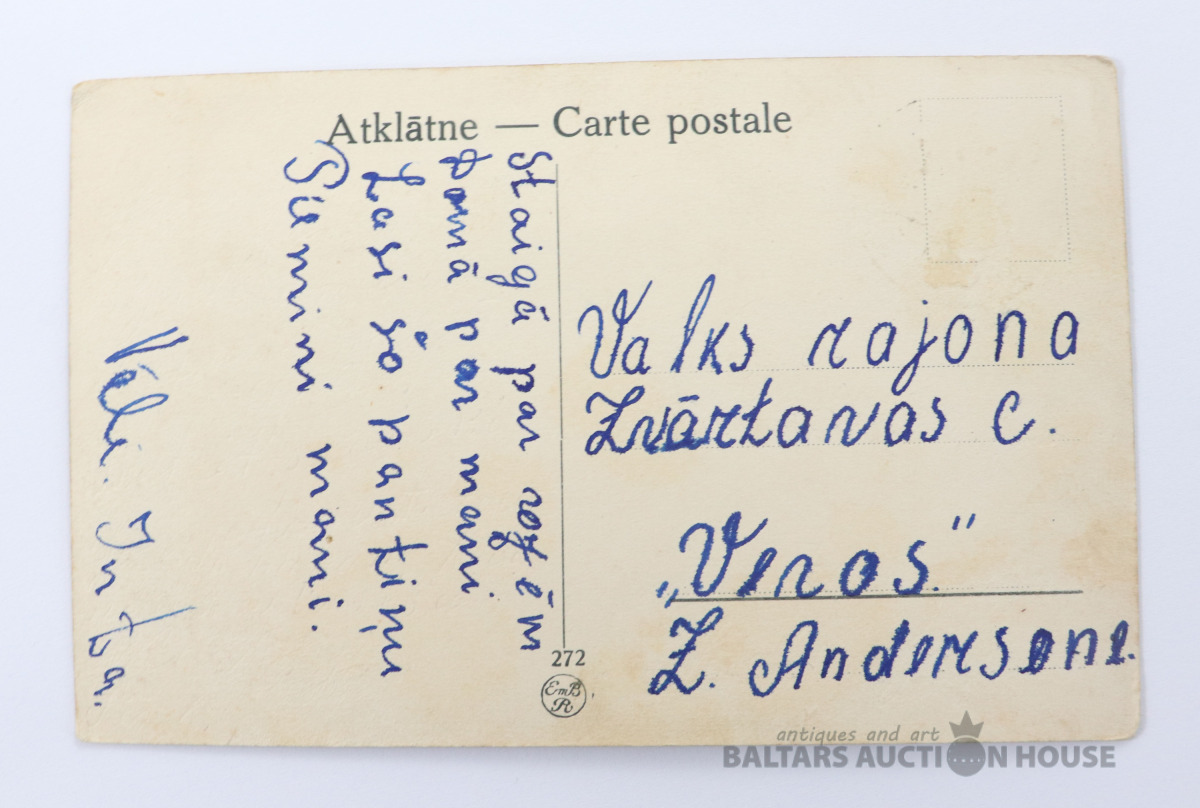 Atklātne — Carte postale
Staigā par rozēm
Domā par mani
Lasi šo pantiņu
Piemini mani.
Vēl. Inta.
Valks rajona
Zvārtavas c.
„Veros.“
Z. Andersone.
272
EmB
R
antiques and art
BALTARS AUCTION HOUSE